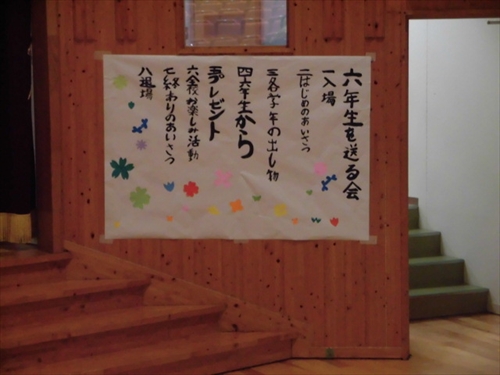 六年生を送る会
一入場
二はじめのあいさつ
三各学年の出し物
四六年生から
五プレゼント
六全校お楽しみ活動
七終わりのあいさつ
八退場